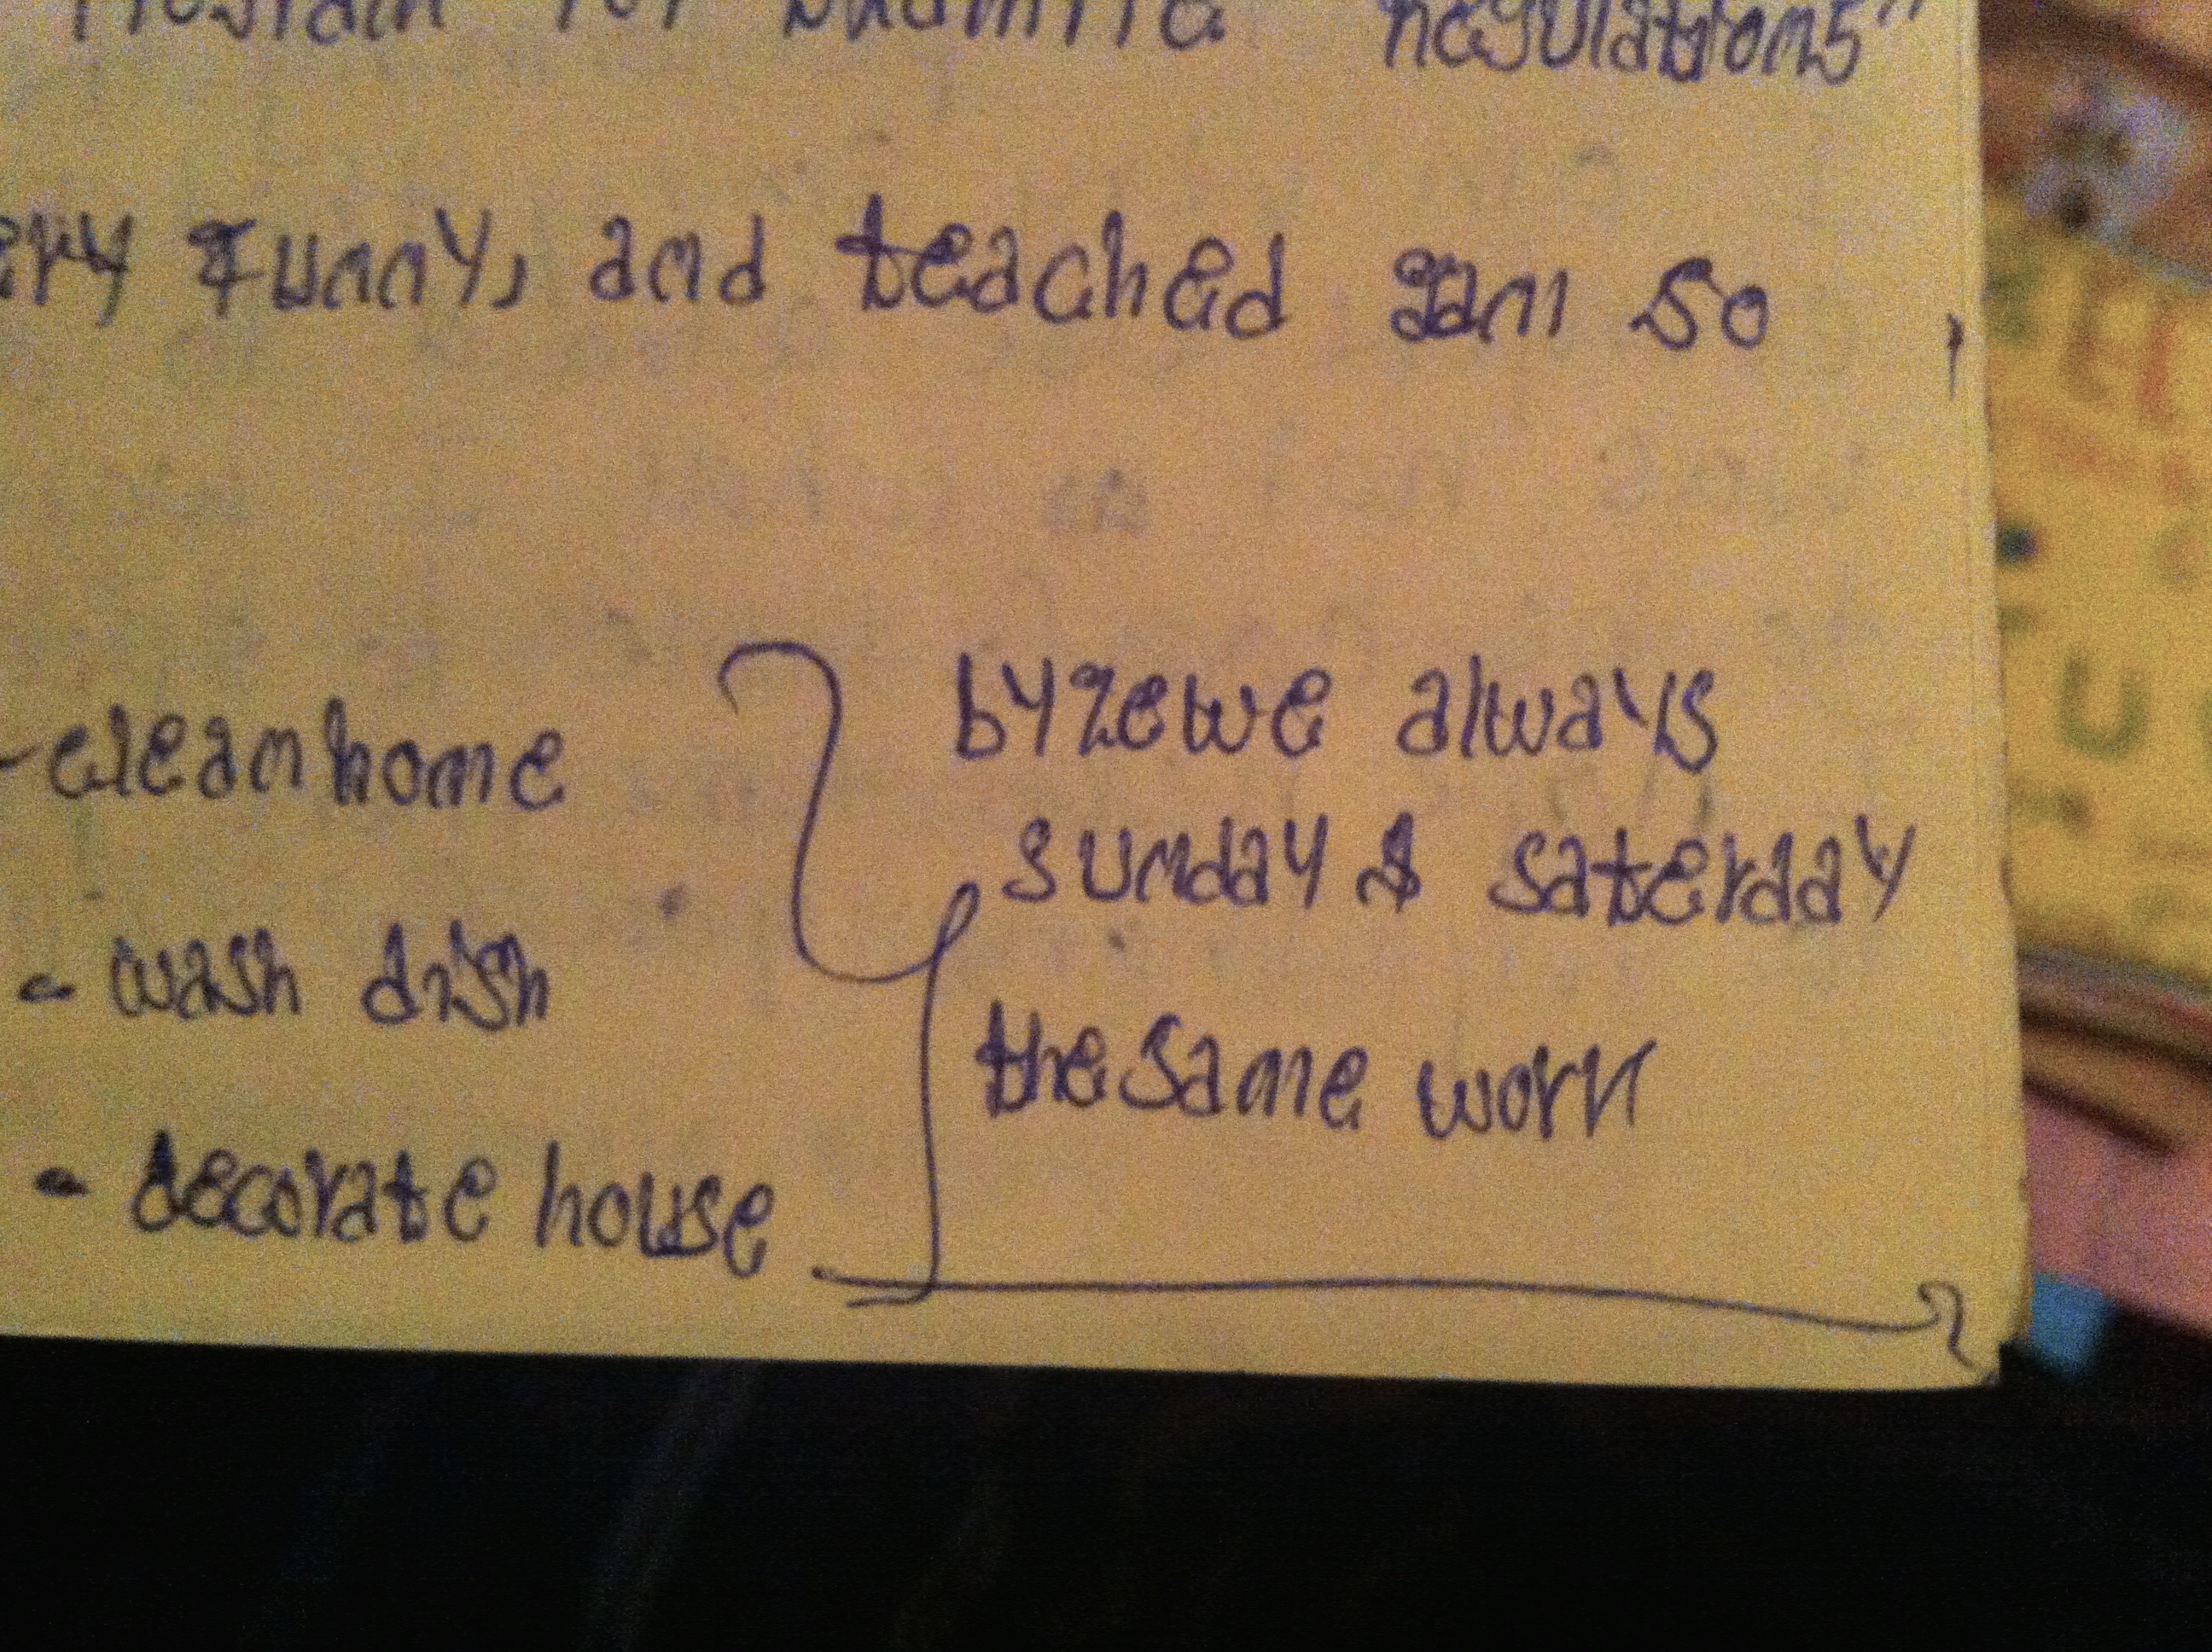 regulations"
ery funny, and teached am so
- clean home
- wash dish
- decorate house
by zewe always
sunday & saterday
the same work